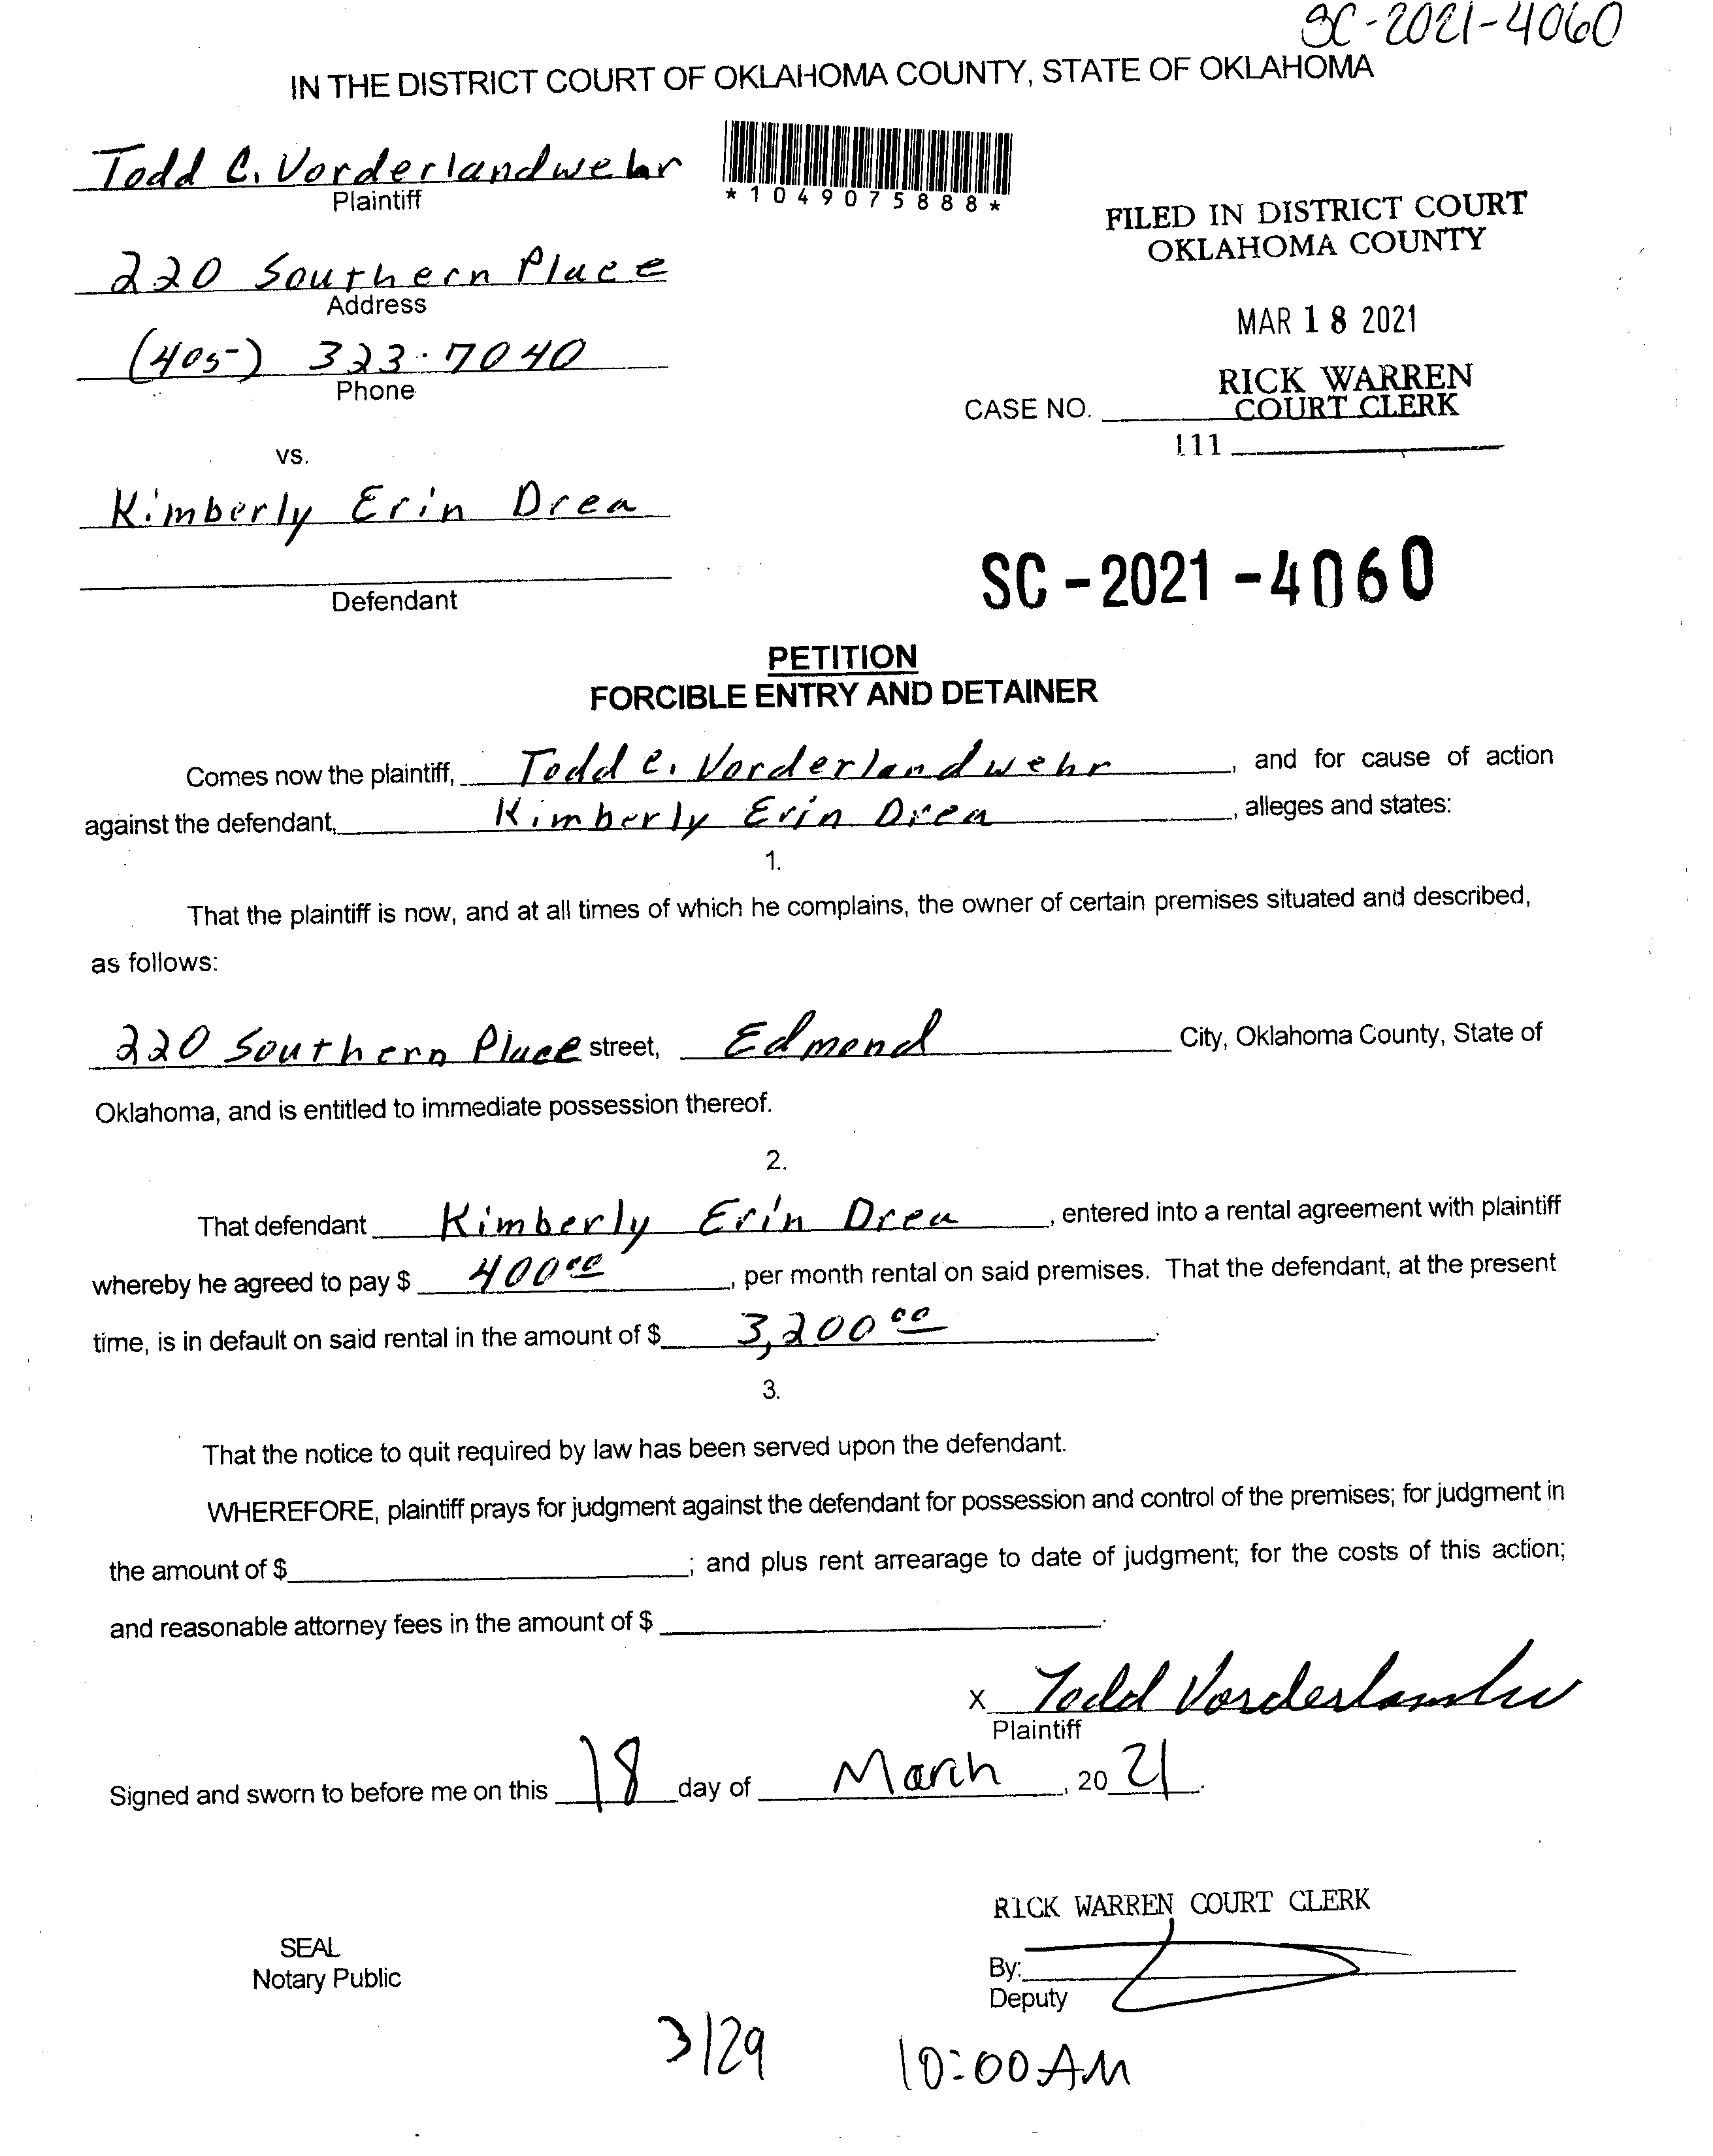 SC-2021-4060
IN THE DISTRICT COURT OF OKLAHOMA COUNTY, STATE OF OKLAHOMA
Todd C. Vorderlandwehr
Plaintiff
*1049075888*
FILED IN DISTRICT COURT
OKLAHOMA COUNTY
220 Southern Place
Address
MAR 18 2021
(405) 323-7040
Phone
RICK WARREN
CASE NO. COURT CLERK
111
vs.
Kimberly Erin Drea
SC-2021-4060
Defendant
PETITION
FORCIBLE ENTRY AND DETAINER
Comes now the plaintiff, Todd C. Vorderlandwehr, and for cause of action
against the defendant, Kimberly Erin Drea, alleges and states:
1.
That the plaintiff is now, and at all times of which he complains, the owner of certain premises situated and described,
as follows:
220 Southern Place street, Edmond City, Oklahoma County, State of
Oklahoma, and is entitled to immediate possession thereof.
2.
That defendant Kimberly Erin Drea, entered into a rental agreement with plaintiff
whereby he agreed to pay $ 400.00, per month rental on said premises. That the defendant, at the present
time, is in default on said rental in the amount of $ 3,200.00.
3.
That the notice to quit required by law has been served upon the defendant.
WHEREFORE, plaintiff prays for judgment against the defendant for possession and control of the premises; for judgment in
the amount of $ ; and plus rent arrearage to date of judgment; for the costs of this action;
and reasonable attorney fees in the amount of $ .
X Todd Vorderlandwehr
Plaintiff
Signed and sworn to before me on this 18 day of March, 2021.
RICK WARREN COURT CLERK
SEAL
Notary Public
By:
Deputy
3/29 10:00 AM